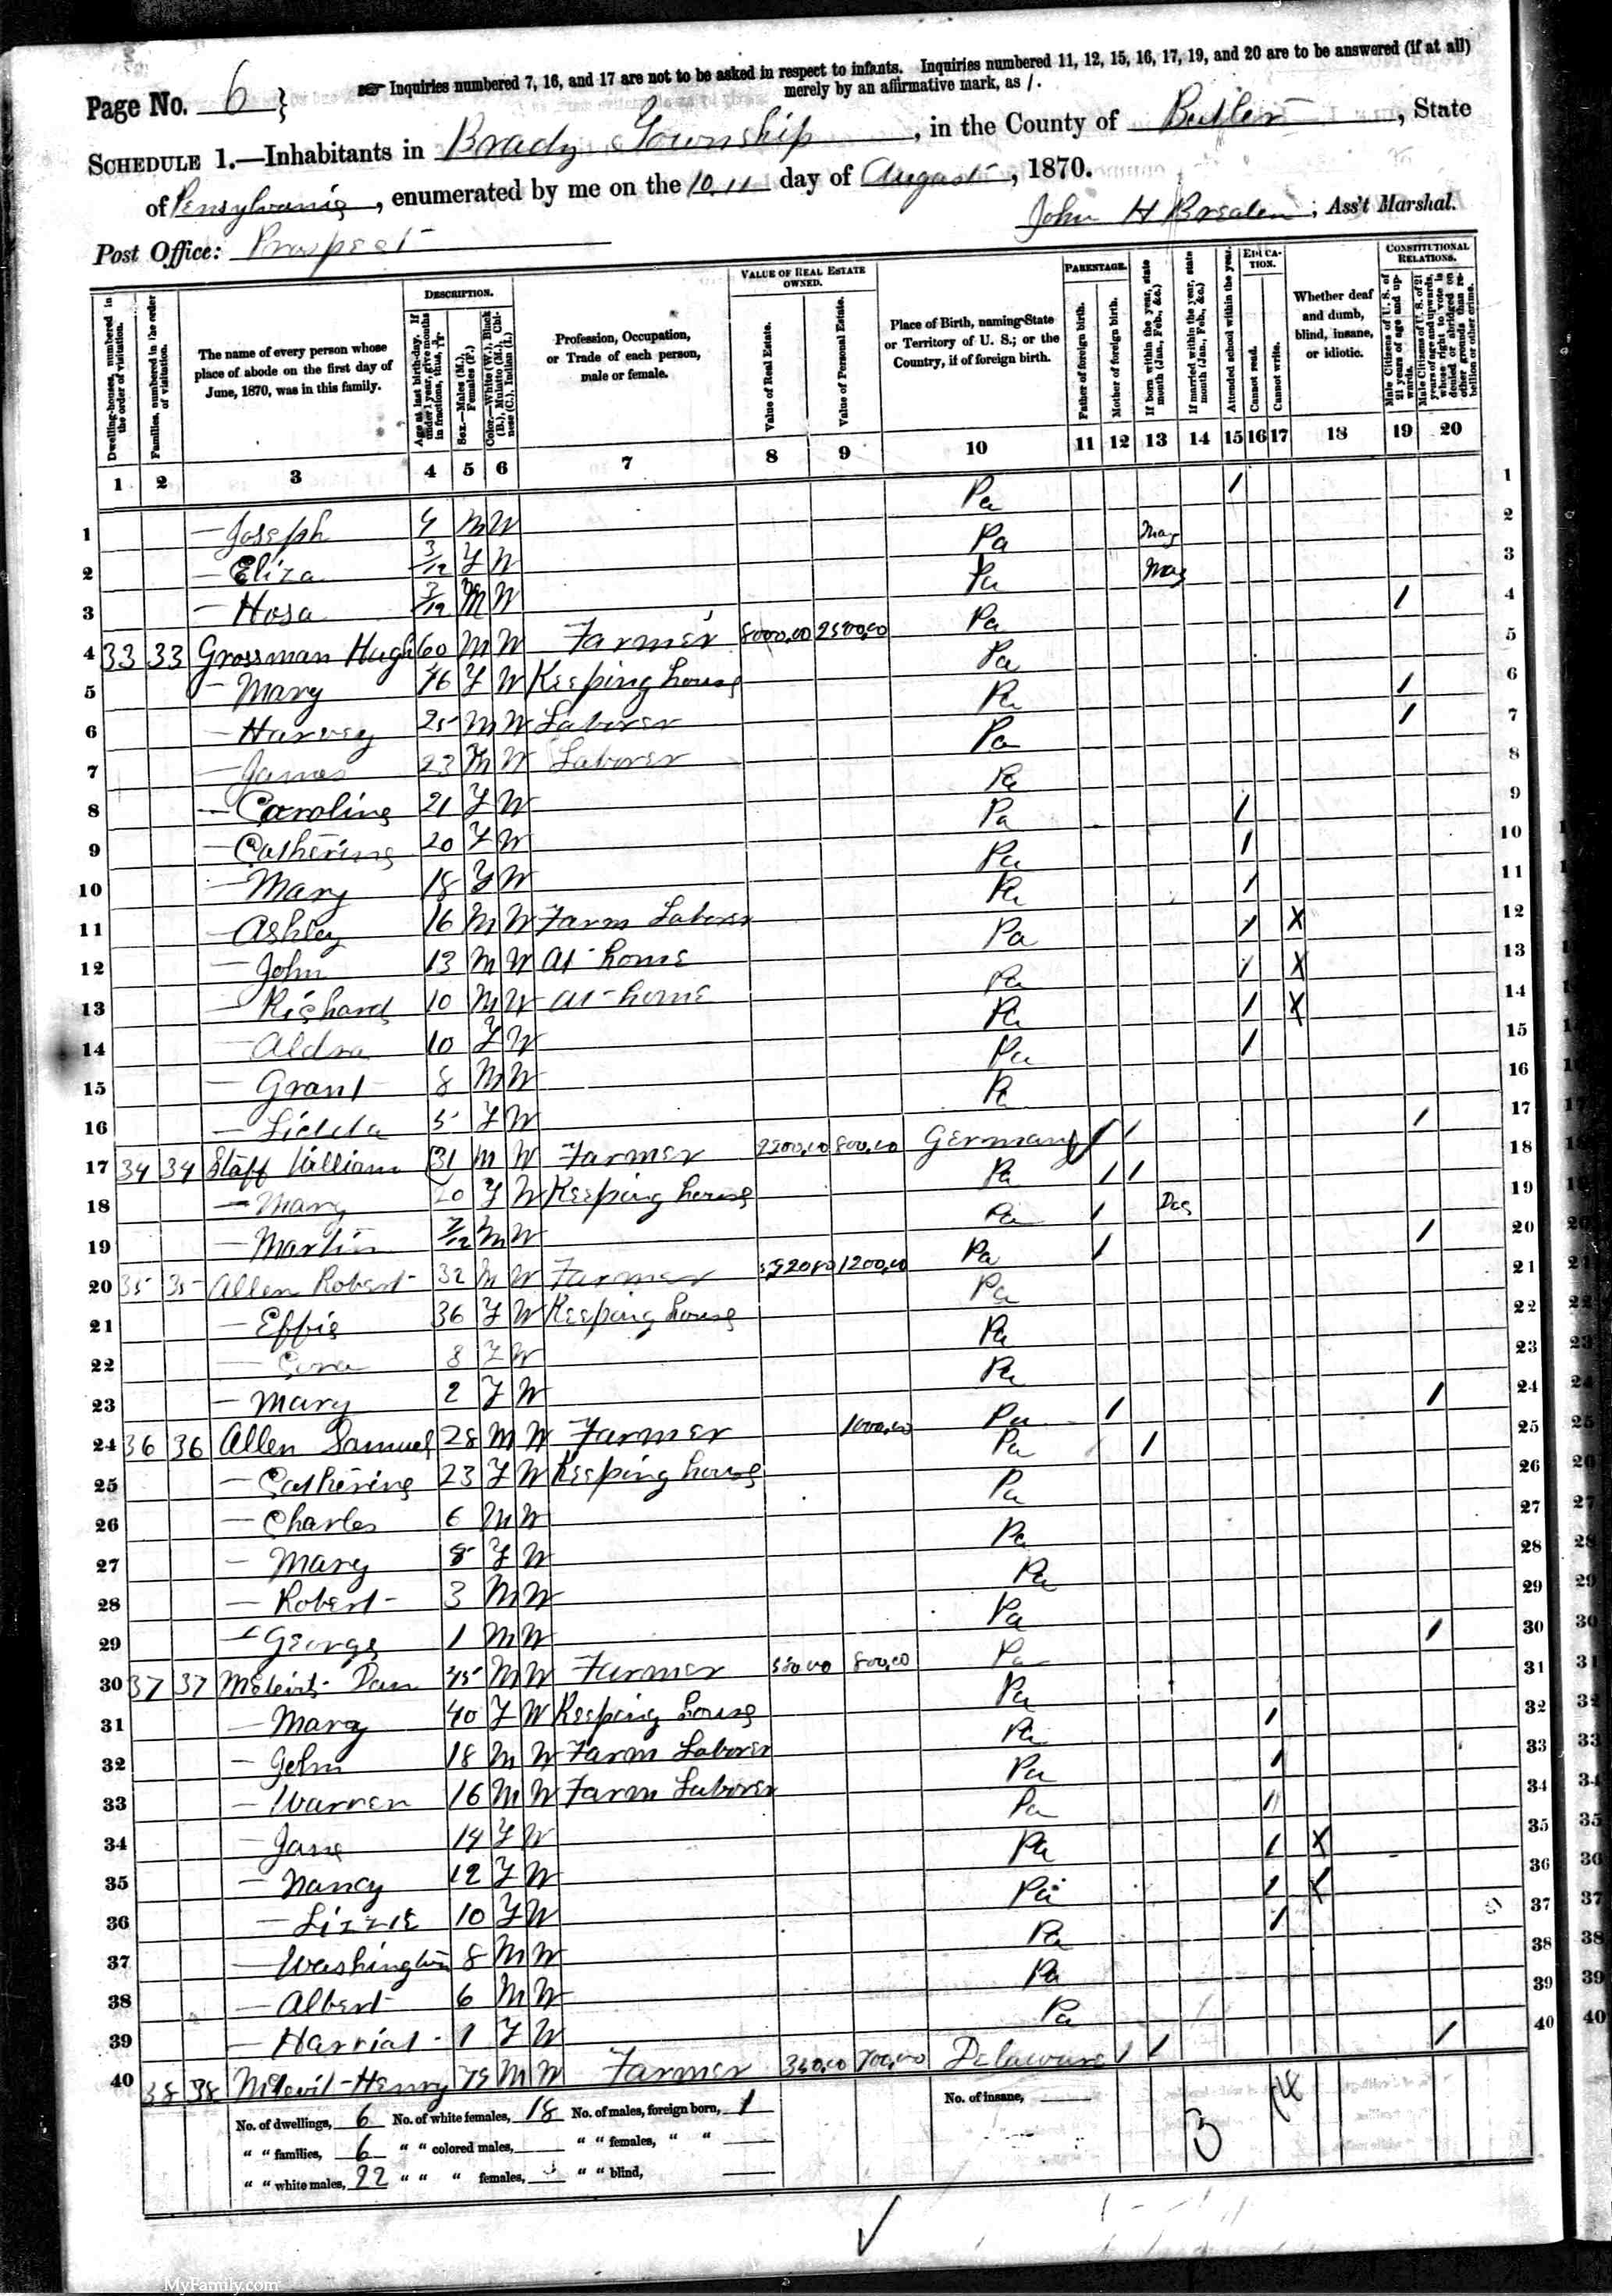 Inquiries numbered 7, 16, and 17 are not to be asked in respect to infants. Inquiries numbered 11, 12, 15, 16, 17, 19, and 20 are to be answered (if at all)
merely by an affirmative mark, as /.
Page No. 6
SCHEDULE 1.—Inhabitants in Brady Township, in the County of Butler, State
of Pensylvania, enumerated by me on the 10 11 day of August, 1870.
Post Office: Prospect
John H , Ass't Marshal.
Dwelling-houses, numbered in the order of visitation.
Families, numbered in the order of visitation.
The name of every person whose place of abode on the first day of June, 1870, was in this family.
DESCRIPTION.
Age at last birth-day. If under 1 year, give months in fractions, thus,
Sex.—Males (M.), Females (F.)
Color.—White (W.), Black (B.), Mulatto (M.), Chinese (C.), Indian (I.)
Profession, Occupation, or Trade of each person, male or female.
VALUE OF REAL ESTATE OWNED.
Value of Real Estate.
Value of Personal Estate.
Place of Birth, naming State or Territory of U. S.; or the Country, if of foreign birth.
PARENTAGE.
Father of foreign birth.
Mother of foreign birth.
If born within the year, state month (Jan., Feb., &c.)
If married within the year, state month (Jan., Feb., &c.)
EDUCATION.
Attended school within the year.
Cannot read.
Cannot write.
Whether deaf and dumb, blind, insane, or idiotic.
CONSTITUTIONAL RELATIONS.
Male Citizens of U. S. of 21 years of age and upwards.
Male Citizens of U. S. of 21 years of age and upwards, whose right to vote is denied or abridged on other grounds than rebellion or other crime.
1 2 3 4 5 6 7 8 9 10 11 12 13 14 15 16 17 18 19 20
1 — Joseph M W Pa / 1
2 — Eliza 3/12 F W Pa May 2
3 — Hosa 3/12 M W Pa May 3
4 33 33 Grossman Hugh 60 M W Farmer 8000,00 2500,00 Pa / 4
5 — Mary 46 F W Keeping house Pa 5
6 — Harvey 25 M W Laborer Pa / 6
7 — James 23 M W Laborer Pa / 7
8 — Caroline 21 F W Pa 8
9 — Catherine 20 F W Pa / 9
10 — Mary 18 F W Pa / 10
11 — Ashley 16 M W Farm Laborer Pa / 11
12 — John 13 M W At home Pa / X 12
13 — Richard 10 M W At home Pa / X 13
14 — Aldra 10 F W Pa / X 14
15 — Grant 8 M W Pa / 15
16 — 5 F W Pa 16
17 34 34 Staff William 31 M W Farmer 2200,00 800,00 Germany / / / 17
18 — Mary 20 F W Keeping house Pa / / 18
19 — Martin 7/12 M W Pa / Dec 19
20 35 35 Allen Robert 32 M W Farmer 1200,00 Pa / / 20
21 — Effie 36 F W Keeping house Pa 21
22 — Cora 8 F W Pa 22
23 — Mary 2 F W Pa 23
24 36 36 Allen Samuel 28 M W Farmer 1000,00 Pa / / 24
25 — Catherine 23 F W Keeping house Pa / 25
26 — Charles 6 M W Pa 26
27 — Mary F W Pa 27
28 — Robert 3 M W Pa 28
29 — George 1 M W Pa 29
30 37 37 Dan 45 M W Farmer 800,00 Pa / 30
31 — Mary 40 F W Keeping house Pa 31
32 — John 18 M W Farm Laborer Pa / 32
33 — Warren 16 M W Farm Laborer Pa / 33
34 — Jane 14 F W Pa / 34
35 — Nancy 12 F W Pa / X 35
36 — Lizzie 10 F W Pa / X 36
37 — Washington 8 M W Pa / 37
38 — Albert 6 M W Pa 38
39 — Harriat 1 F W Pa 39
40 38 38 Henry 75 M W Farmer 700,00 Delaware / / / 40
No. of dwellings, 6 No. of white females, 18 No. of males, foreign born, 1 No. of insane,
" " families, 6 " " colored males, " " females, " "
" " white males, 22 " " " females, " " blind,
MyFamily.com